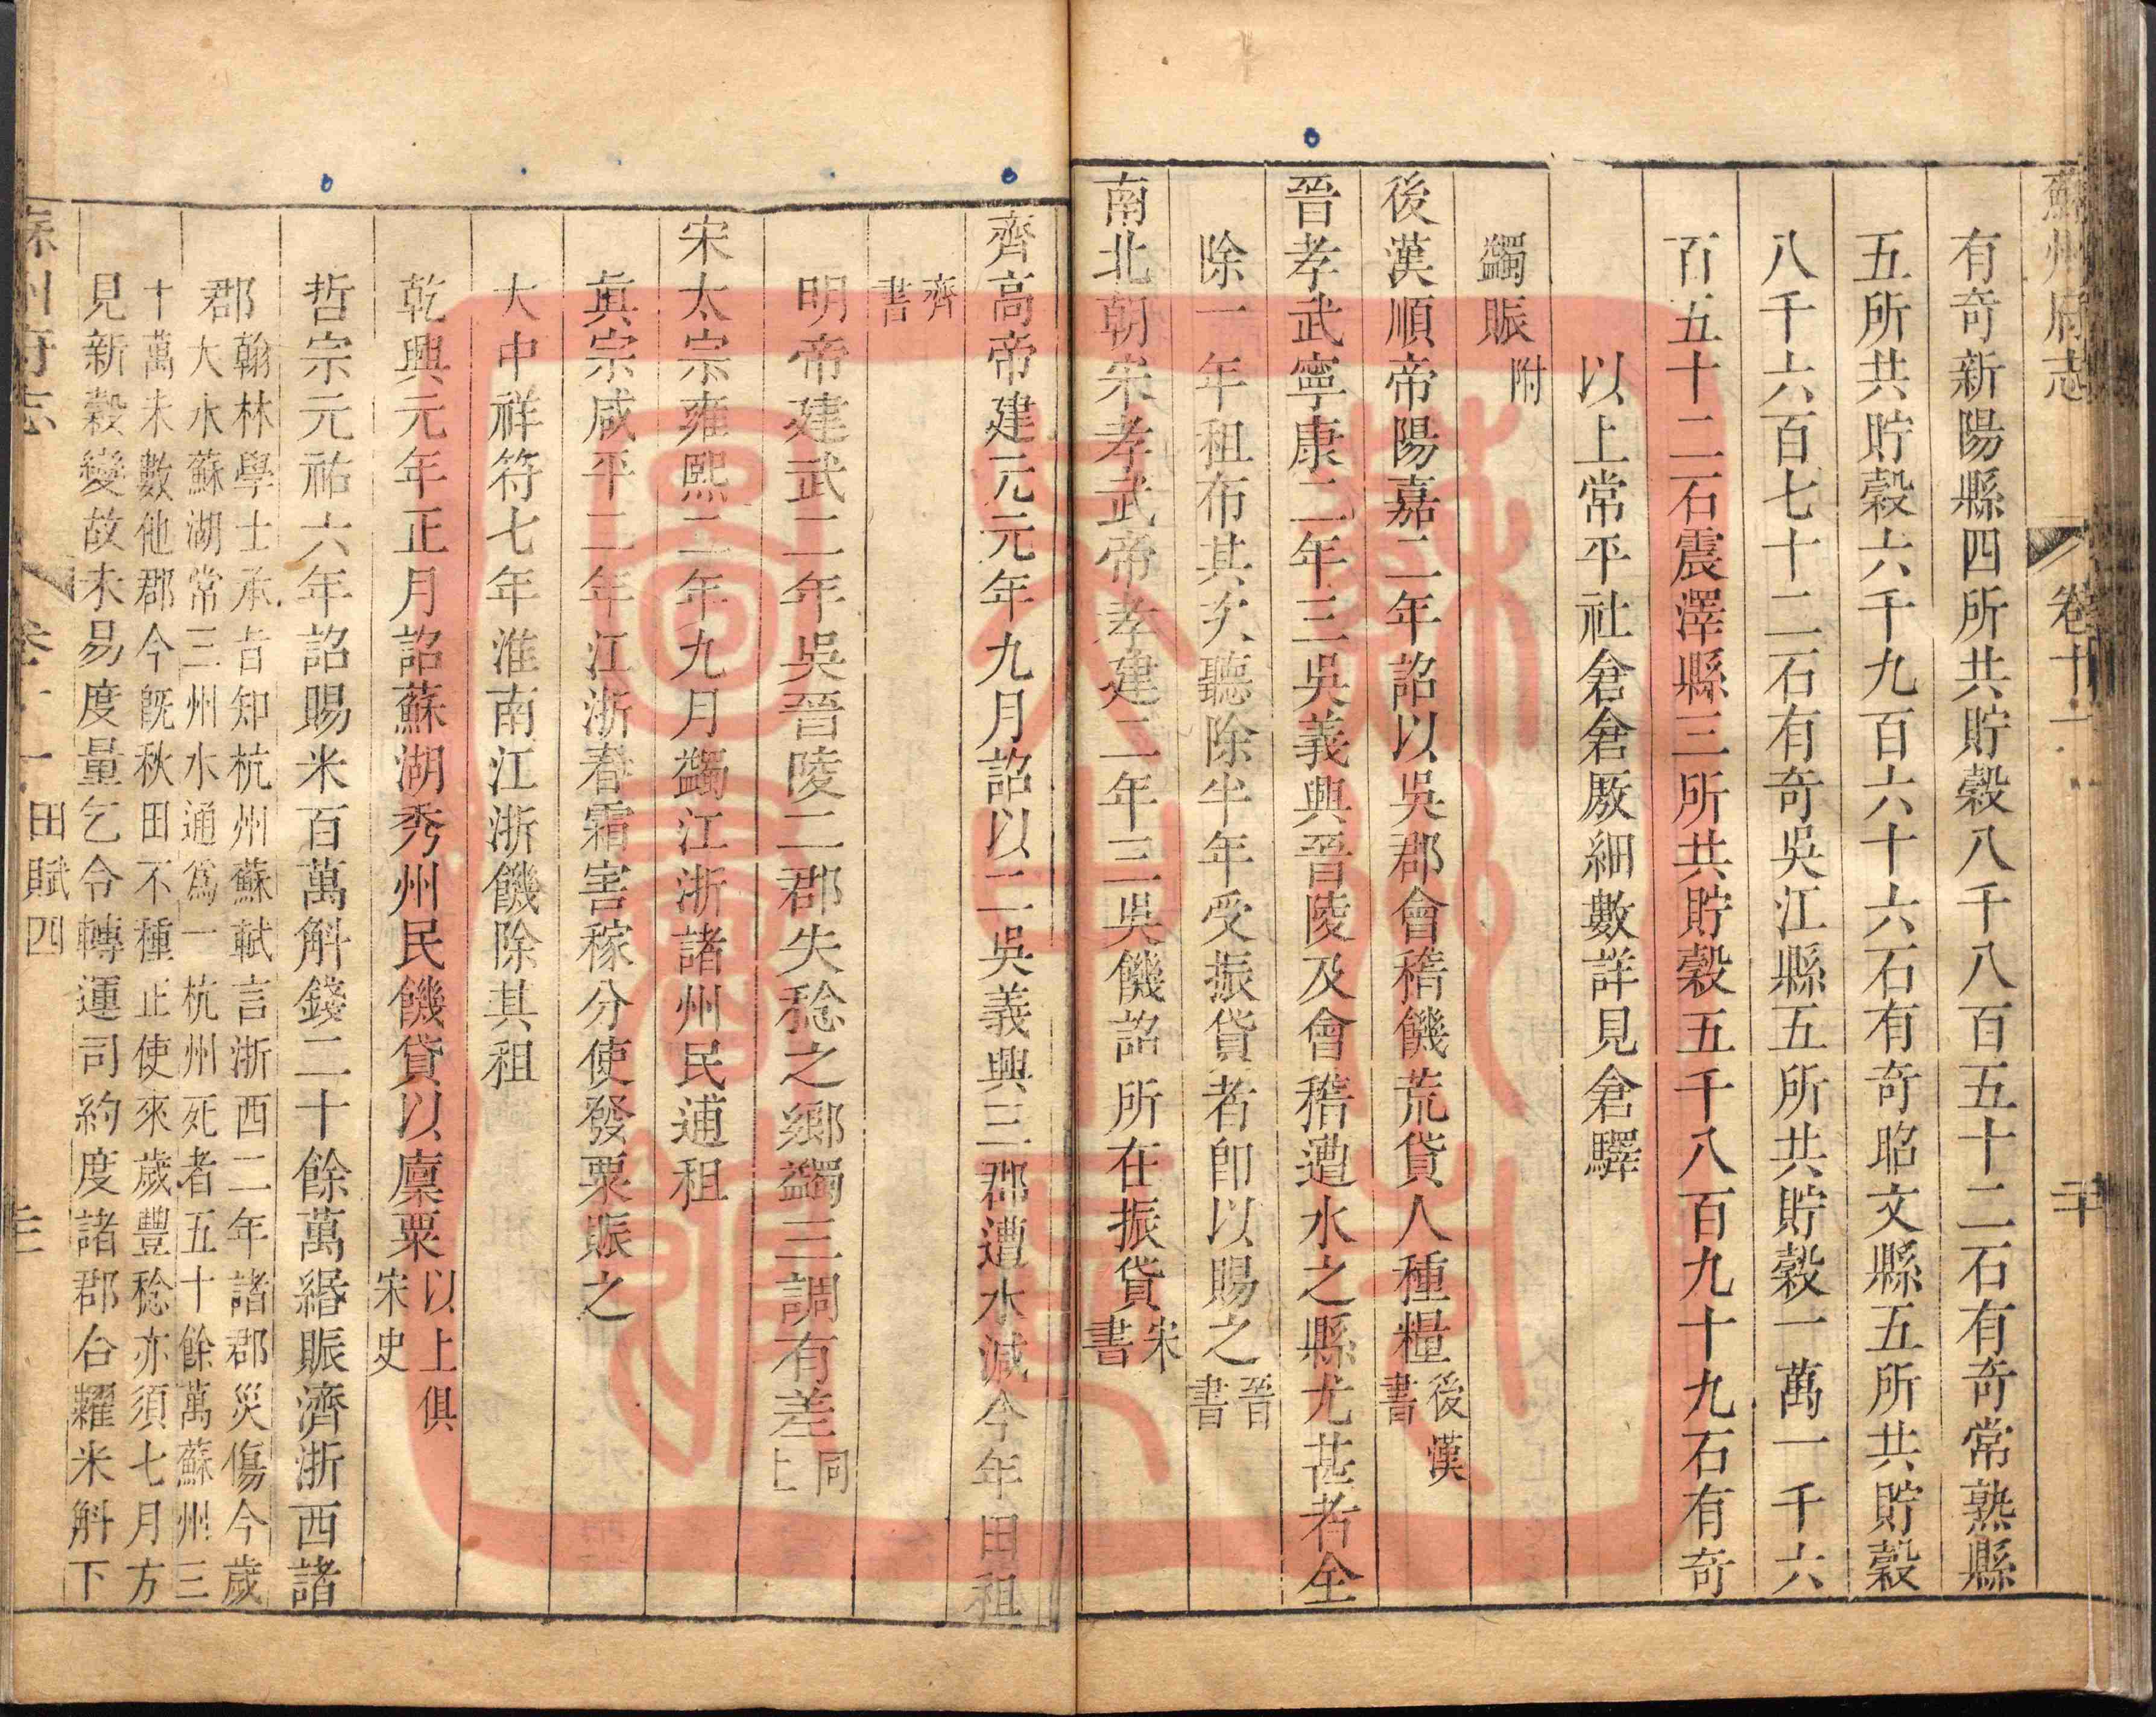 蘇州府志 卷十一 二十
有奇新陽縣四所共貯穀八千八百五十二石有奇常熟縣
五所共貯穀六千九百六十六石有奇昭文縣五所共貯穀
八千六百七十二石有奇吳江縣五所共貯穀一萬一千六
百五十二石震澤縣三所共貯穀五千八百九十九石有奇
以上常平社倉倉厫細數詳見倉驛
蠲賑附
後漢順帝陽嘉二年詔以吳郡會稽饑荒貸人種糧後漢書
晉孝武寧康二年三吳義興晉陵及會稽遭水之縣尤甚者全
除一年租布其次聽除半年受振貸者卽以賜之晉書
南北朝宋孝武帝孝建二年三吳饑詔所在振貸宋書
齊高帝建元元年九月詔以二吳義興三郡遭水減今年田租
齊書
明帝建武二年吳晉陵二郡失稔之鄉蠲三調有差同上
宋太宗雍熙二年九月蠲江浙諸州民逋租
眞宗咸平二年江浙春霜害稼分使發粟賑之
大中祥符七年淮南江浙饑除其租
乾興元年正月詔蘇湖秀州民饑貸以廩粟以上俱宋史
哲宗元祐六年詔賜米百萬斛錢二十餘萬緡賑濟浙西諸
郡翰林學士承旨知杭州蘇軾言浙西二年諸郡災傷今歲
大水蘇湖常三州水通爲一杭州死者五十餘萬蘇州三
十萬未數他郡今旣秋田不種正使來歲豐稔亦須七月方
見新穀變故未易度量乞令轉運司約度諸郡合糶米斛下
蘇州府志 卷十一 田賦四